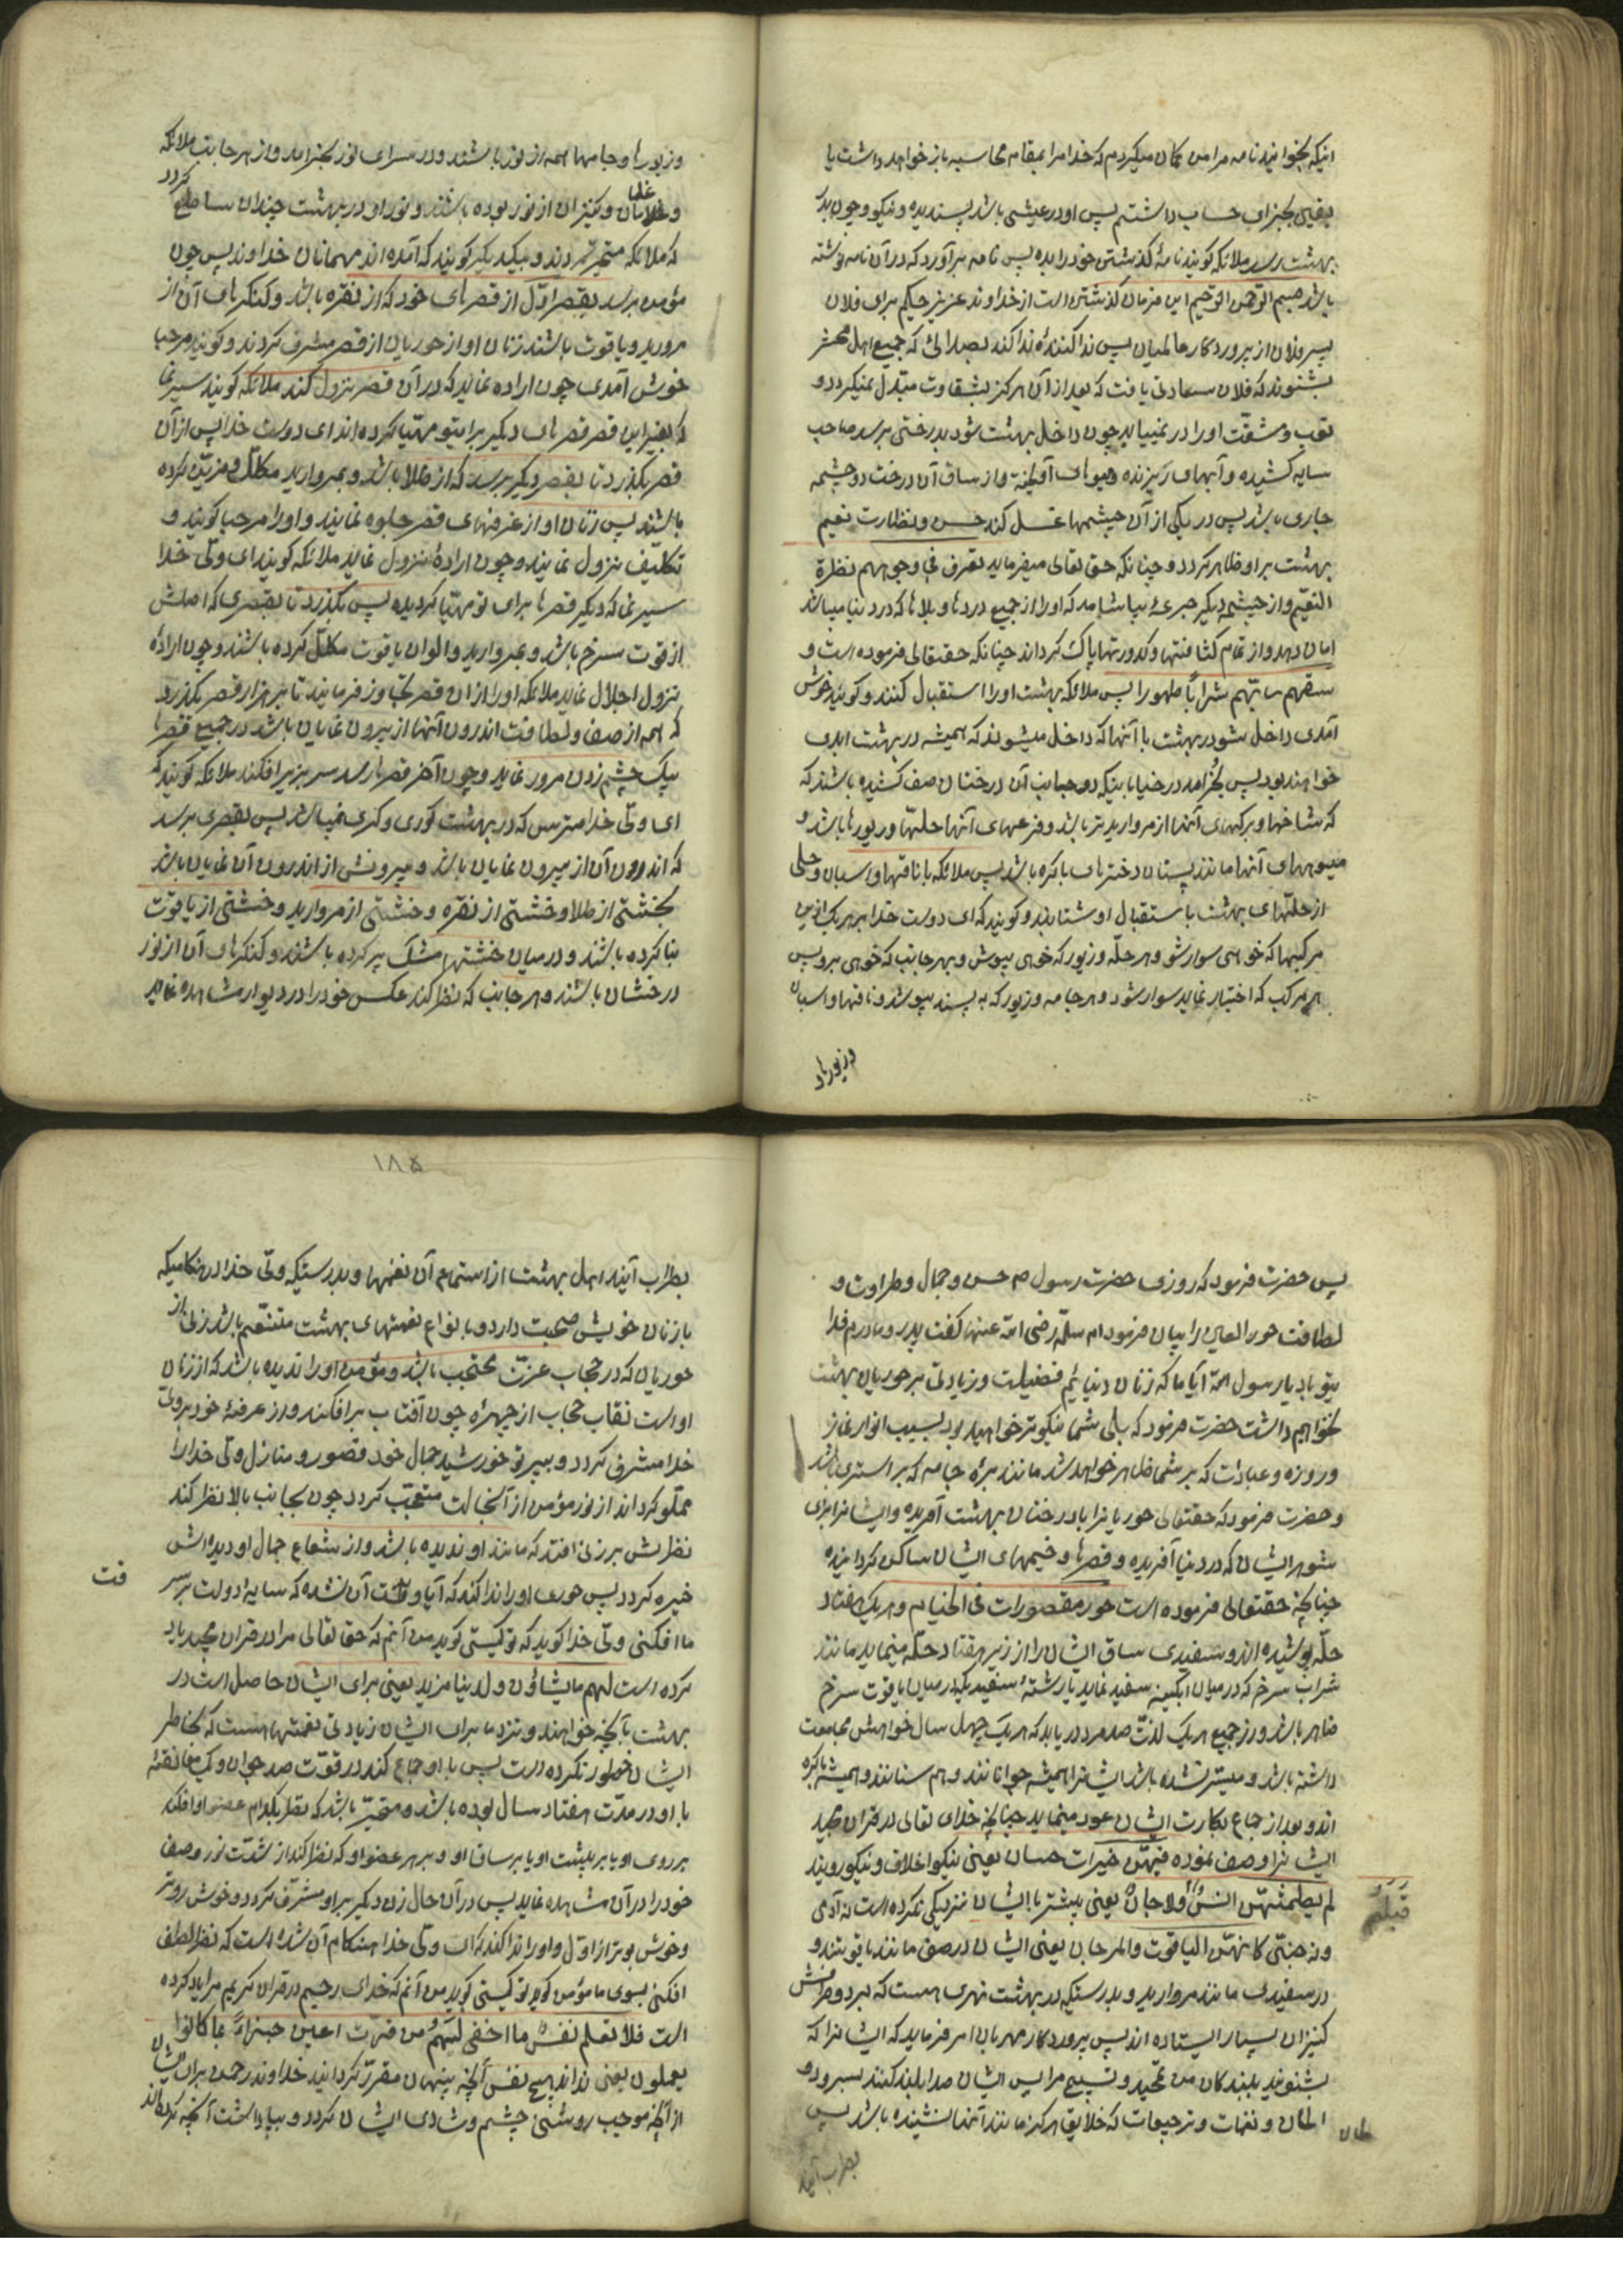 اینکه بخوانید نامه مرا من گمان میکردم که خدا مرا بمقام محاسبه باز خواهد داشت یا
یقین بجزای حساب داشتم پس او در عیشی باشد پسندیده و نیکو و چون بدر
بهشت رسد ملائکه گویند نامهٔ گذشتن خود را بده پس نامه برآورد که در آن نامه نوشته
باشد بسم الرحمن الرحیم این فرمان گذشتن است از خداوند عزیز حکیم برای فلان
پسر فلان از پروردگار عالمیان پس ندا کنندهٔ ندا کند بصدائی که جمیع اهل محشر
بشنوند که فلان سعادتی یافت که بعد از آن هرگز بشقاوت مبدّل نمیگردد و
تعب و مشقّت او را در نمییابد چون داخل بهشت شود بدرختی برسد صاحب
سایه کشیده و آبهای ریزنده و میوهای آویخته و از ساق آن درخت دو چشمه
جاری باشد پس در یکی از آن چشمها غسل کند حسن و نظارت نعیم
بهشت بر او ظاهر گردد و چنانکه حق تعالی میفرماید تعرف فی وجوههم نظرة
النعیم و از چشمه دیگر جرعهٔ بیاشامد که او را از جمیع دردها و بلاها که در دنیا میباشد
امان دهد و از تمام کثافتها و کدورتها پاک گرداند چنانکه حقتعالی فرموده است و
سقهم ربّهم شراباً طهورا پس ملائکه بهشت او را استقبال کنند و گویند خوش
آمدی داخل شو در بهشت با آنها که داخل میشوند که همیشه در بهشت ابدی
خواهند بود پس بخرامد در خیابانیکه دو جانب آن درختان صف کشیده باشند که
که شاخها و برگهای آنها از مروارید تر باشد و فرعهای آنها حلّها و زیورها باشد و
میوههای آنها مانند پستان دخترهای باکره باشد پس ملائکه با ناقها و اسبان و حلی
از حلّهای بهشت باستقبال او شتابند و گویند که ای دوست خدا بر هر یک از این
مرکبها که خواهی سوار شو و هر حلّه و زیور که خوهی بپوش و بهر جانب که خوهی برو پس
بر هر مرکب که اختیار نماید سوار شود و هر جامه و زیور که به پسندد بپوشد و ناقها و اسبان
و زیورها
و زیورها و جامها همه از نور باشند و در سرای نور بخرامد و از هر جانب ملائکه
و غلمان و کنیزان از نور بوده باشند و نور او در بهشت چندان ساطع گردد
که ملائکه متحیّر گردند و بیکدیگر گویند که آمده اند مهمانان خداوند پس چون
مؤمن برسد بقصر اوّل از قصرهای خود که از نقره باشد و کنگرهای آن از
مروارید و یاقوت باشند زنان او از حوریان از قصر مشرف گردند و گویند مرحبا
خوش آمدی چون اراده نماید که در آن قصر نزول کند ملائکه گویند سیر نما
که بغیر این قصر قصرهای دیگر برای تو مهیّا کرده اند ای دوست خدا پس از آن
قصر بگذرد تا بقصر دیگر برسد که از طلا باشد و بمروارید مکلّل و مزیّن کرده
باشند پس زنان او از غرفهای قصر جلوه نمایند و او را مرحبا گویند و
تکلیف نزول نمایند و چون ارادهٔ نزول نماید ملائکه گویند ای ولیّ خدا
سیر نما که دیگر قصرها برای تو مهیّا گردیده پس بگذرد تا بقصری که اصلش
از قوت سرخ باشد و بمروارید و الوان یاقوت مکلّل کرده باشند و چون ارادهٔ
نزول اجلال نماید ملائکه او را از ان قصر تجاوز فرمایند تا بر هزار قصر بگذرد
که همه از صفا و لطافت اندرون آنها از بیرون نمایان باشد در جمیع قصرها
بیک چشم زدن مرور نماید و چون آخر قصرها رسد سر بزیر افکند ملائکه گویند که
ای ولیّ خدا مترس که در بهشت کوری و کری نمیباشد پس بقصری برسد
که اندرون آن از بیرون نمایان باشد و بیرونش از اندرون آن نمایان باشد
بخشتی از طلا و خشتی از نقره و خشتی از مروارید و خشتی از یاقوت
بنا کرده باشند و در میان خشتها مشک پر کرده باشند و کنگرهای آن از نور
درخشان باشند و هر جانب که نظر کند عکس خود را در دیوار مشاهده نماید
پس حضرت فرمود که روزی حضرت رسول ص حسن و جمال و طراوت و
لطافت حور العین را بیان فرمود ام سلمه رضی الله عنها گفت پدر و مادرم فدا
یتو باد یا رسول الله آیا ما که زنان دنیائیم فضیلت و زیادتی بر حوریان بهشت
نخواهیم داشت حضرت فرمود که بلی شما نیکوتر خواهید بود بسبب انوار نماز
و روزه و عبادات که بر شما ظاهر خواهد شد مانند برهٔ جامه که بر استری باشد
و حضرت فرمود که حقتعالی حوریانرا با درختان بهشت آفریده و ایشانرا برای
شوهر ایشان که در دنیا آفریده و قصرها و خیمهای ایشان ساکن گردانیده
چنانچه حقتعالی فرموده است حور مقصورات فی الخیام و هر یک هفتاد
حلّه پوشیده اند و سفیدی ساق ایشان را از زیر هفتاد حلّه مینماید مانند
شراب سرخ که در میان ابگینه سفید نماید یا رشتهٔ سفید یکه در میان یاقوت سرخ
ظاهر باشد و از جمیع هر یک لذّت صد مرد دریابد که هر یک چهل سال خواهش مجامعت
داشته باشد و میسّر نشده باشد ایشانرا همیشه جوانانند و هم سنانند و همیشه باکره
اند و بعد از جماع بکارت ایشان عود مینماید چنانچه خدای تعالی در قران مجید
ایشانرا وصف نموده فیهنّ خیرات حسان یعنی نیکو اخلاق و نیکو رویند
لم یطمثهنّ انسٌ ولا جانٌ یعنی پیشتر با ایشان نزدیکی نکرده است نه آدمی
قبلهم
و نه جنّی کانهنّ الیاقوت والمرجان یعنی ایشان در صفا مانند یاقوتند و
در سفیدی مانند مروارید و بدرستیکه در بهشت نهری هست که بر دو طرفش
کنیزان بسیار ایستاده اند پس پروردگار مهربان امر فرماید که ایشانرا که
بشنوید بلندگان من تمجید و تسبیح مرا پس ایشان صدا بلند کنند بسرود و
الحان و نغمات و ترجیعات که خلایق هرگز مانند آنها نشنیده باشد پس
بطرب آیند
۱۸۵
بطراب آیند اهل بهشت از استماع آن نغمها و بدرستیکه ولیّ خدا در هنگامیکه
با زنان خویش صحبت دارد و بانواع نعمتهای بهشت متنعّم باشد زنی از
حوریان که در حجاب عزّت محتجب باشد و مؤمن او را ندیده باشد که از زنان
او است نقاب حجاب از چهرهٔ چون آفتاب برافکند و از غرفهٔ خود بر ولیّ
خدا مشرف گردد و بپرتو خورشید جمال خود قصور و منازل ولی خدا را
مملو گرداند از نور مؤمن از آنحالت متعجّب گردد چون بجانب بالا نظر کند
نظرش بر زنی افتد که مانند او ندیده باشد و از شعاع جمال او دیده اش
خیره گردد پس حوری او را ندا کند که آیا وقت آن نشده که سایه دولت بر سر
ما افکنی ولیّ خدا گوید که تو کیستی گوید من آنم که حق تعالی مرا در قران مجید یاد
کرده است لهم ما یشاؤن و لدینا مزید یعنی برای ایشان حاصل است در
بهشت بآنچه خواهند و نزد ما برای ایشان زیادتی نعمتها هست که بخاطر
ایشان خطور نکرده است پس با او جماع کند در قوّت صد جوان و یک معانقهٔ
با او در مدّت هفتاد سال بوده باشد و متحیّر باشد که نظر بکدام عضو او افکند
بر روی او یا بر پشت او یا بر ساق او و بر هر عضو او که نظر کند از شدّت نور و صفا
خود را در آن مشاهده نماید پس در آن حال زن دیگر بر او مشرف گردد و خوش روتر
و خوش بوتر از اوّل و او را ندا کند که ای ولیّ خدا هنگام آن شده است که نظر لطف
افکنی بسوی ما مؤمن گوید تو کیستی گوید من آنم که خدای رحیم در قران کریم مرا یاد کرده
است فلا تعلم نفسٌ ما اخفی لهم من قرّت اعین جزاءً بما کانوا
یعملون یعنی نداند هیچ نفس آنچه پنهان مقرّر گردانید خداوند رحمن برای ایشان
از آنچه موجب روشنی چشم و شادی ایشان گردد و بپاداشت آنچه کرده اند